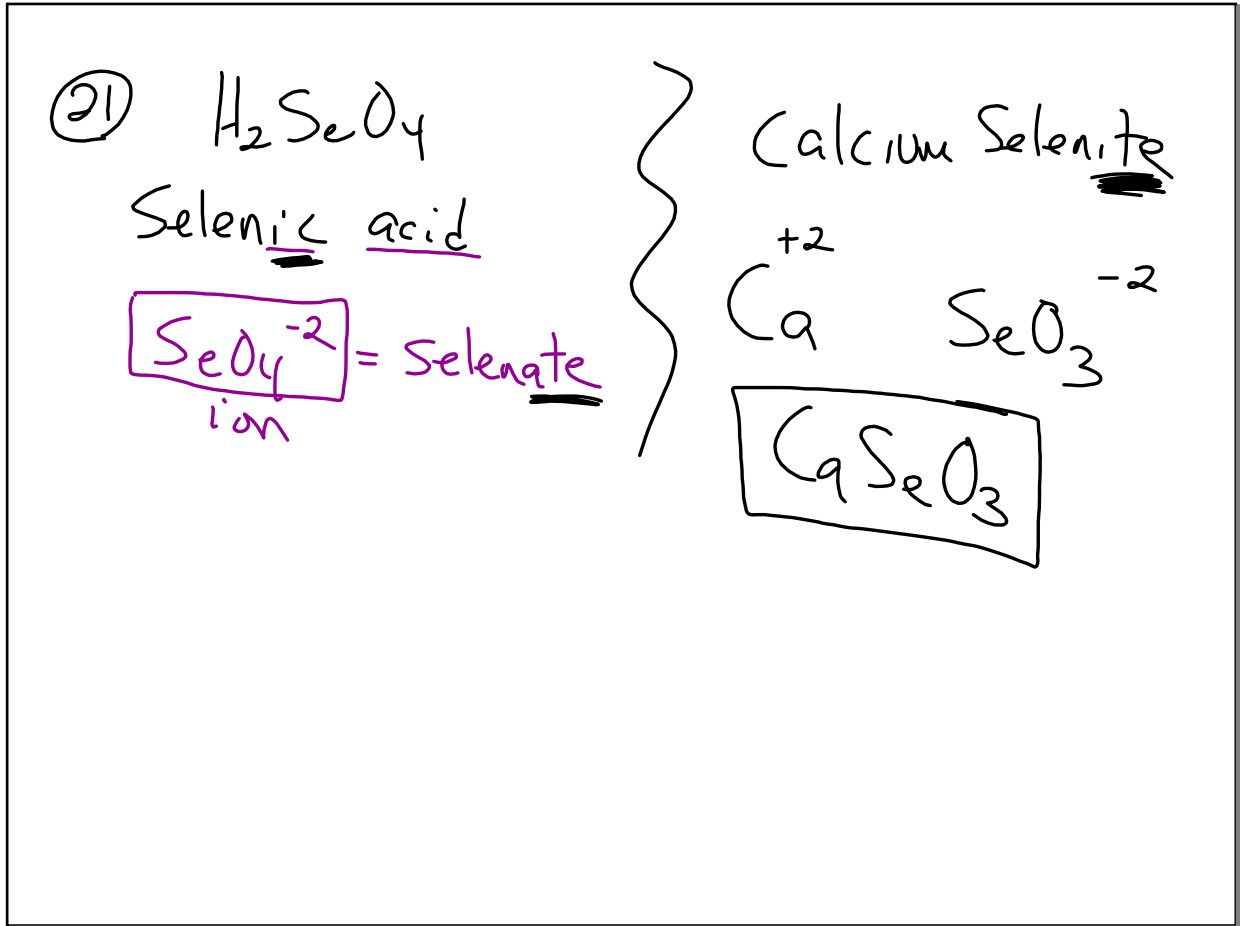 21 H₂SeO₄
Selenic acid
SeO₄⁻² = Selenate
ion
Calcium Selenite
Ca⁺² SeO₃⁻²
CaSeO₃